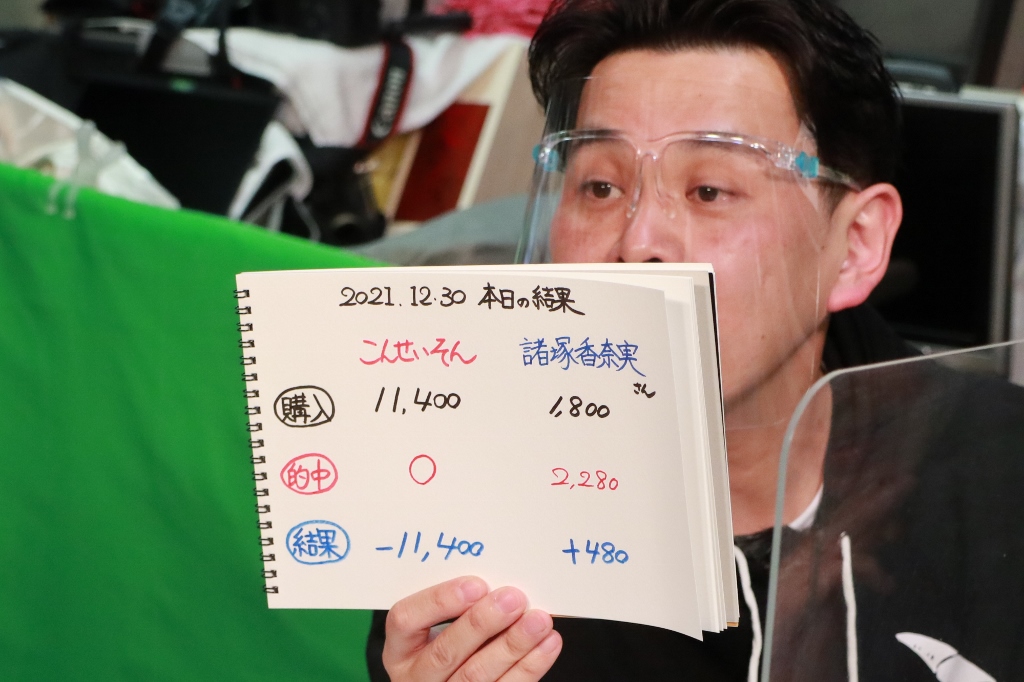 2021.12.30 本日の結果
こんせいそん 諸塚香奈実さん
購入 11,400 1,800
的中 0 2,280
結果 -11,400 +480